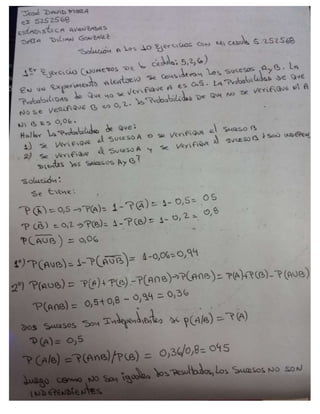 José DAVID MORA
cc 5252568
ESTADISTICA AVANZADAS
JADA Dilian GONZALEZ
Solución a los 10 Ejercicios con mi cedula 5.252568
1er Ejercicio (numeros De la cédula: 5,2,6)
En un Experimento aleatorio se consideran los sucesos A y B. La
Probabilidad de que no se verifique A es 0.5. La Probabilidad de que
No se verifique B es 0,2. La Probabilidad De que no se verifique ni A
ni B es 0,06.
Hallar la Probabilidad de que:
1) Se verifique el Suceso A o se verifique el suceso B
2) Se verifique el Suceso A y se verifique el suceso B ¿ son indepen
Dientes los Sucesos A y B?
Solución:
Se tiene:
P(Ā)=0,5→P(A)= 1-P(Ā)= 1-0,5= 05
P(B̄)=0,2→P(B)= 1-P(B̄)= 1-0,2= 0,8
P(A̅U̅B̅)= 0,06
1º) P(AUB)=1-P(A̅U̅B̅)= 1-0,06=0,94
2º) P(AUB)= P(A)+P(B)-P(A∩B)→P(A∩B)=P(A)+P(B)-P(AUB)
P(A∩B)= 0,5+0,8-0,94=0,36
Dos Sucesos Son Independientes si P(A/B)=P(A)
P(A)=0,5
P(A/B)=P(A∩B)/P(B)= 0,36/0,8=045
Luego como No Son iguales los Resultados, Los Sucesos NO SON
INDEPENDIENTES